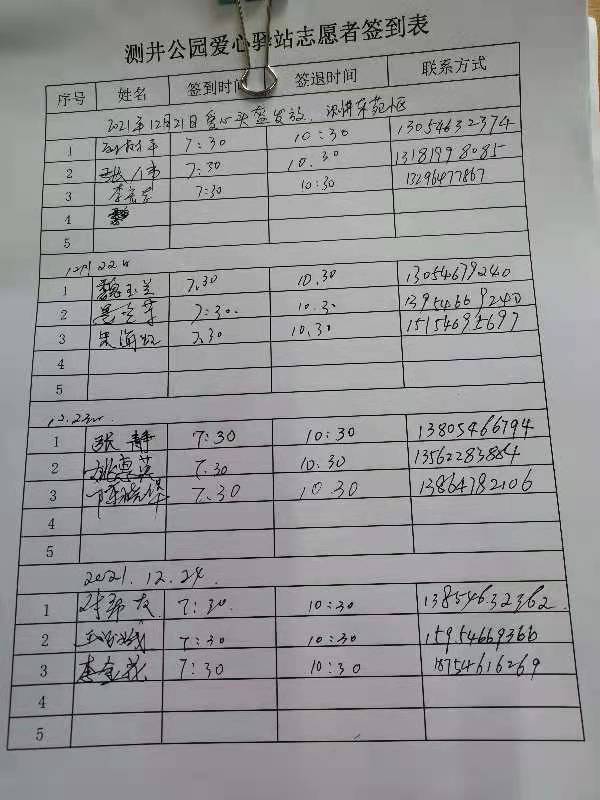 测井公园爱心驿站志愿者签到表
序号 姓名 签到时间 签退时间 联系方式
2021年12月21日爱心头盔发放
1 7:30 10:30 13054632374
2 7:30 10.30 13181998085
3 7:30 10:30 13296477867
4
5
12月22日
1 魏玉兰 7.30 10.30 13054679240
2 7:30. 10.30 13954669240
3 7.30 10.30
4
5
12.23
1 张静 7:30 10:30 13805466794
2 姚惠英 7.30 10.30 13562283884
3 7.30 10.30 13864782106
4
5
2021.12.24.
1 7:30. 10:30 13854632362.
2 7:30 10:30 15954669366
3 7:30 10:30 18754616269
4
5